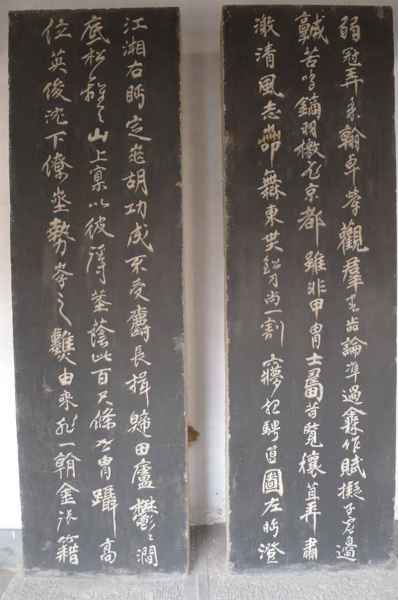 弱冠弄柔翰卓犖觀羣書著論準過秦作賦擬子虛邊
城苦鳴鏑羽檄飛京都雖非甲冑士疇昔覽穰苴長嘯
激清風志若無東吳鉛刀尚一割夢想騁良圖左眄澄
江湘右眄定羌胡功成不受爵長揖歸田廬鬱々澗
底松離々山上苗以彼徑寸莖蔭此百尺條世冑躡高
位英俊沈下僚地勢使之然由來非一朝金張籍